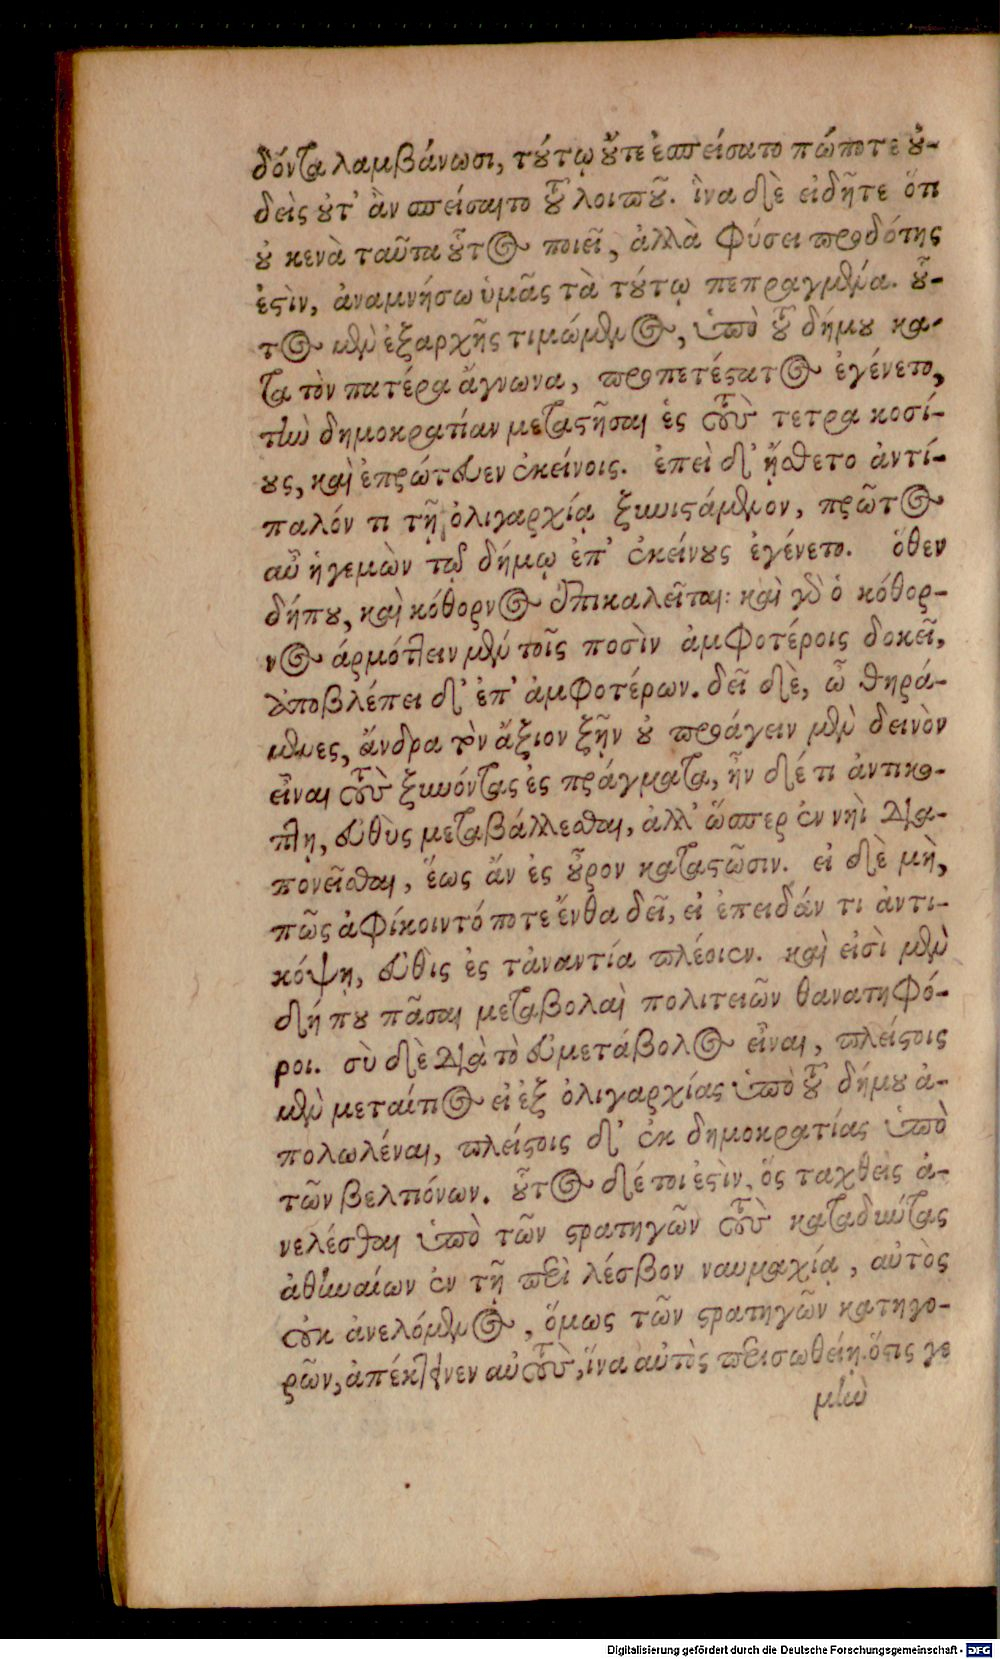 δόντα λαμβάνωσι, τούτῳ οὔτε ἐσπείσατο πώποτε οὐ-
δεὶς οὐτ' ἂν σπείσαιτο τοῦ λοιποῦ. ἵνα δὲ εἰδῆτε ὅτι
οὐ κενὰ ταῦτα οὗτος ποιεῖ, ἀλλὰ φύσει προδότης
ἐστὶν, ἀναμνήσω ὑμᾶς τὰ τούτῳ πεπραγμένα. οὗ-
τος μὲν ἐξαρχῆς τιμώμενος, ὑπὸ τοῦ δήμου κα-
τα τὸν πατέρα ἄγνωνα, προπετέστατος ἐγένετο,
τὴν δημοκρατίαν μεταστῆσαι ἐς τοὺς τετρα κοσί-
ους, καὶ ἐπρώτευεν ἐκείνοις. ἐπεὶ δ' ᾔσθετο ἀντί-
παλόν τι τῇ ὀλιγαρχίᾳ ξυνιστάμενον, πρῶτος
αὖ ἡγεμὼν τῷ δήμῳ ἐπ' ἐκείνους ἐγένετο. ὅθεν
δήπου, καὶ κόθορνος ἐπικαλεῖται: καὶ γὰρ ὁ κόθορ-
νος ἁρμόττειν μὲν τοῖς ποσὶν ἀμφοτέροις δοκεῖ,
ἀποβλέπει δ' ἐπ' ἀμφοτέρων. δεῖ δὲ, ὦ θηρά-
μενες, ἄνδρα τὸν ἄξιον ζῆν οὐ προάγειν μὲν δεινὸν
εἶναι τοὺς ξυνόντας ἐς πράγματα, ἢν δέ τι ἀντικό-
πτῃ, εὐθὺς μεταβάλλεσθαι, ἀλλ' ὥσπερ ἐν νηῒ δια-
πονεῖσθαι, ἕως ἂν ἐς οὖρον καταστῶσιν. εἰ δὲ μὴ,
πῶς ἀφίκοιντό ποτε ἔνθα δεῖ, εἰ ἐπειδάν τι ἀντι-
κόψῃ, εὐθὶς ἐς τἀναντία πλέοιεν. καὶ εἰσὶ μὲν
δή που πᾶσαι μεταβολαὶ πολιτειῶν θανατηφό-
ροι. σὺ δὲ διὰ τὸ εὐμετάβολος εἶναι, πλείστοις
μὲν μεταίτιος εἶ ἐξ ὀλιγαρχίας ὑπὸ τοῦ δήμου ἀ-
πολωλέναι, πλείστοις δ' ἐκ δημοκρατίας ὑπὸ
τῶν βελτιόνων. οὗτος δέ τοι ἐστὶν, ὅς ταχθεὶς ἀ-
νελέσθαι ὑπὸ τῶν στρατηγῶν τοὺς καταδύντας
ἀθηναίων ἐν τῇ περὶ λέσβον ναυμαχίᾳ, αὐτὸς
οὐκ ἀνελόμενος, ὅμως τῶν στρατηγῶν κατηγο-
ρῶν, ἀπέκτεινεν αὐτοὺς, ἵνα αὐτὸς περισωθείη. ὅστις γε
μὴν